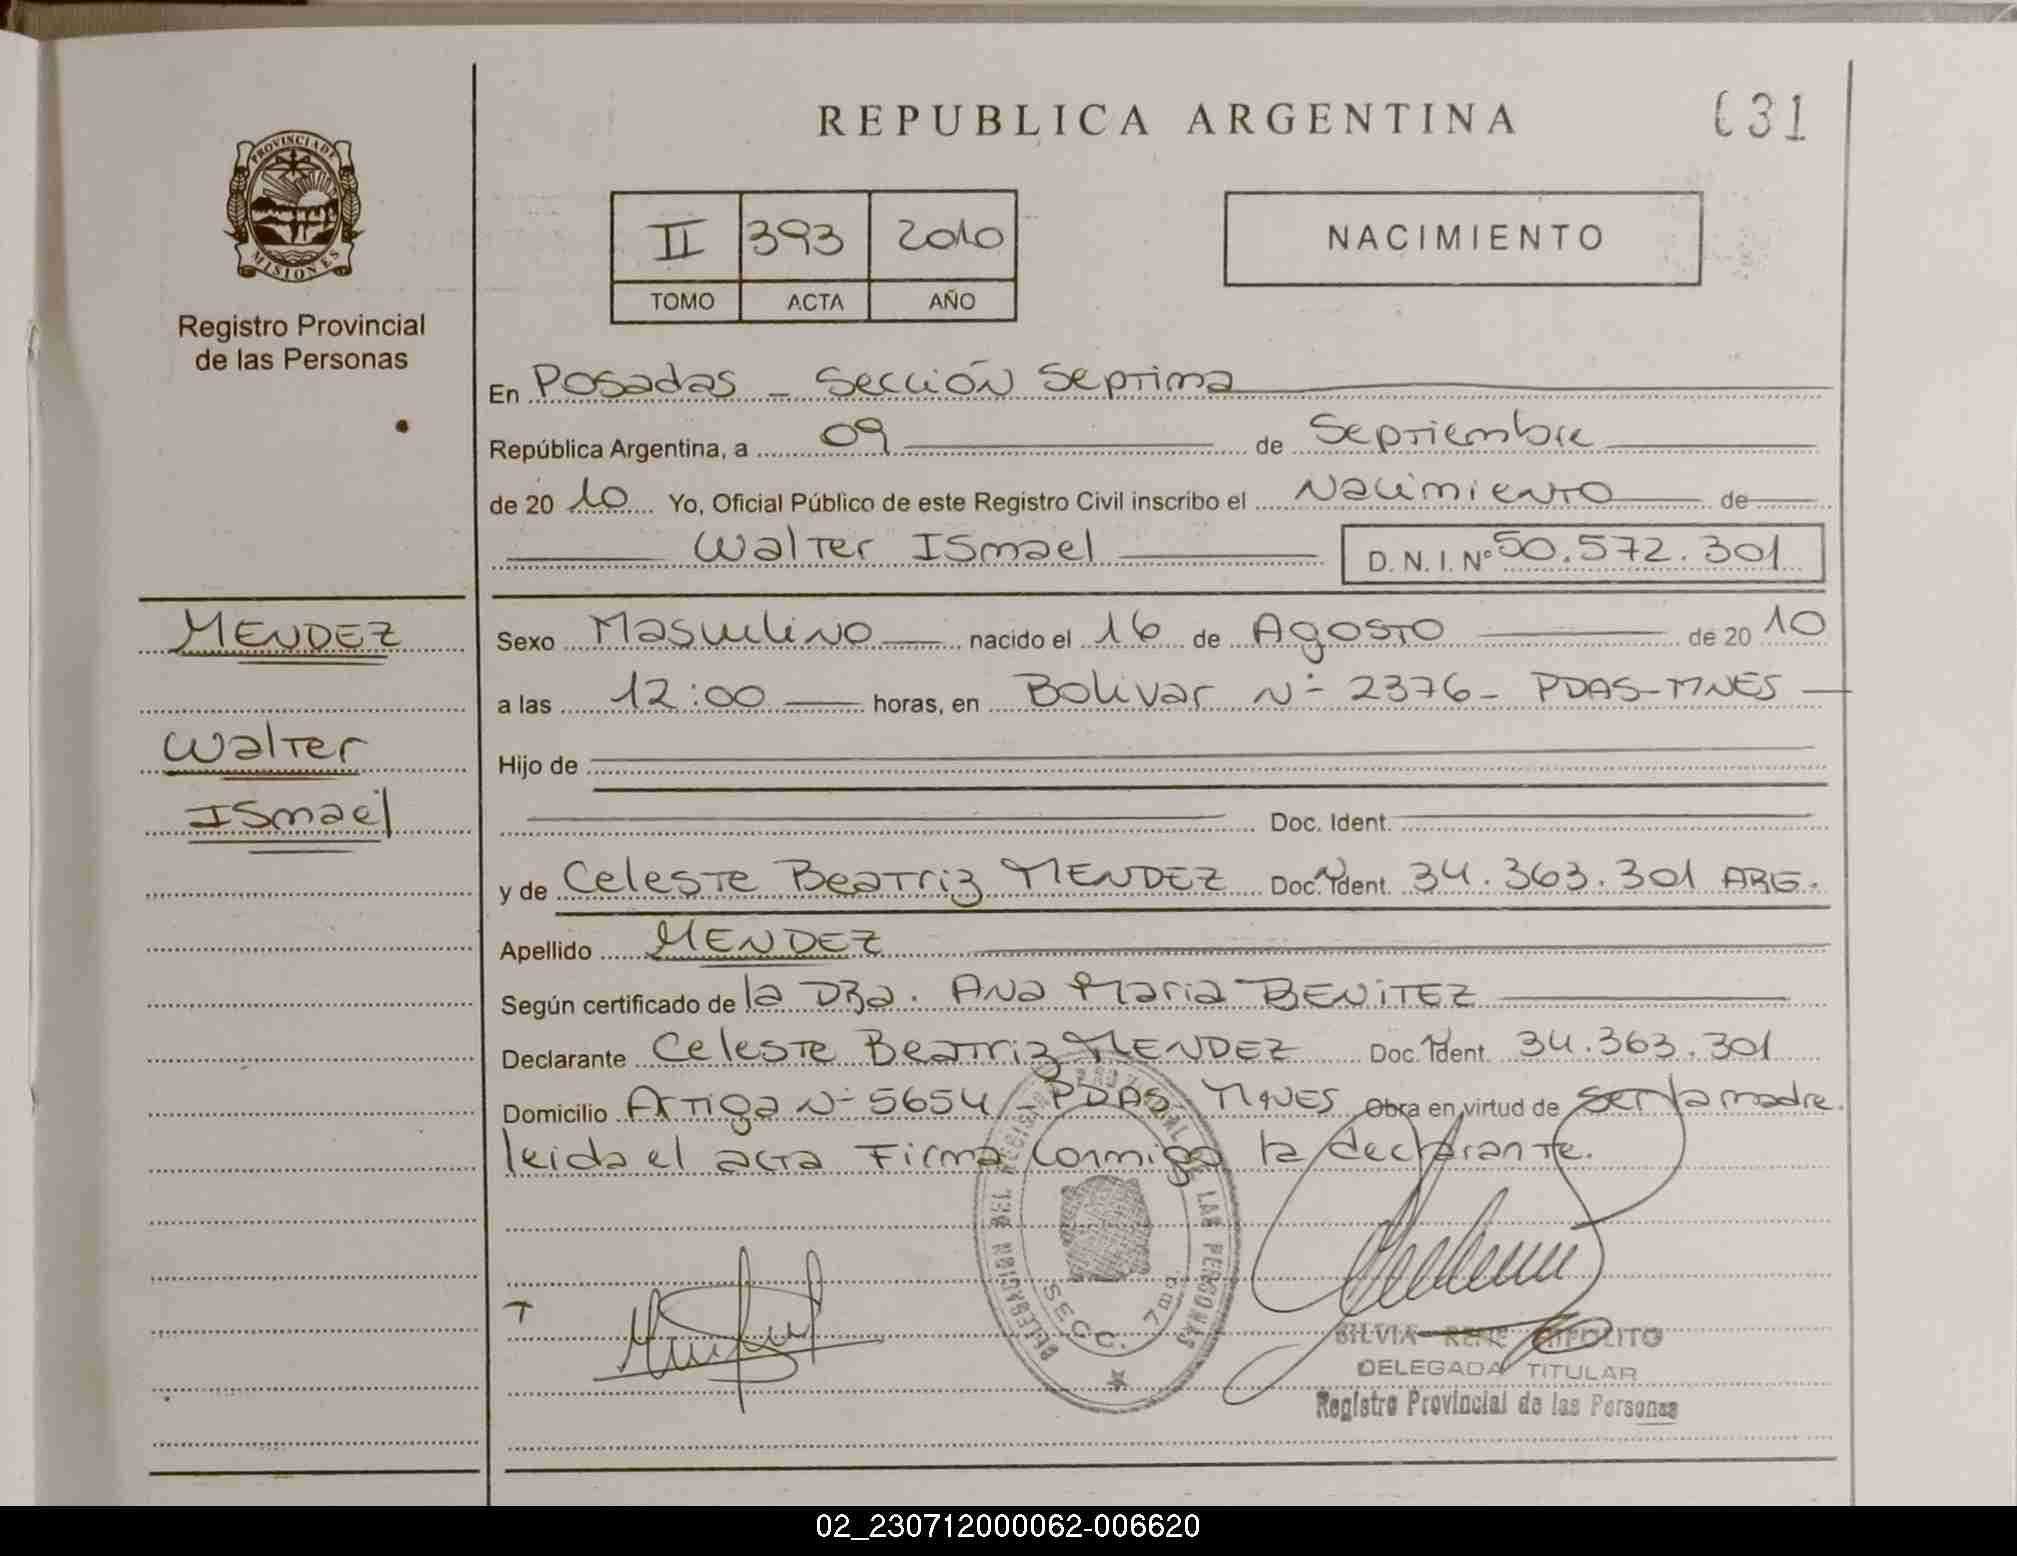 REPUBLICA ARGENTINA
031
PROVINCIA DE
MISIONES
Registro Provincial
de las Personas
II 393 2010
TOMO ACTA AÑO
NACIMIENTO
En Posadas - Sección Septima
República Argentina, a 09 de Septiembre
de 2010 Yo, Oficial Público de este Registro Civil inscribo el Nacimiento de
Walter Ismael D.N.I. Nº 50.572.301
MENDEZ
Walter
Ismael
Sexo Masculino nacido el 16 de Agosto de 2010
a las 12:00 horas, en Bolivar Nº 2376 - PDAS-MNES
Hijo de
Doc. Ident.
y de Celeste Beatriz MENDEZ Doc. Ident. 34.363.301 ARG.
Apellido MENDEZ
Según certificado de la DRa. Ana Maria BENITEZ
Declarante Celeste Beatriz MENDEZ Doc. Ident. 34.363.301
Domicilio Artiga Nº 5654 - PDAS MNES Obra en virtud de ser la madre.
leida el acta Firma conmigo la declarante.
DELEGACION DEL REGISTRO PROVINCIAL DE LAS PERSONAS
SECC. 7ma.
SILVIA RENE HIPOLITO
DELEGADA TITULAR
Registro Provincial de las Personas
02_230712000062-006620